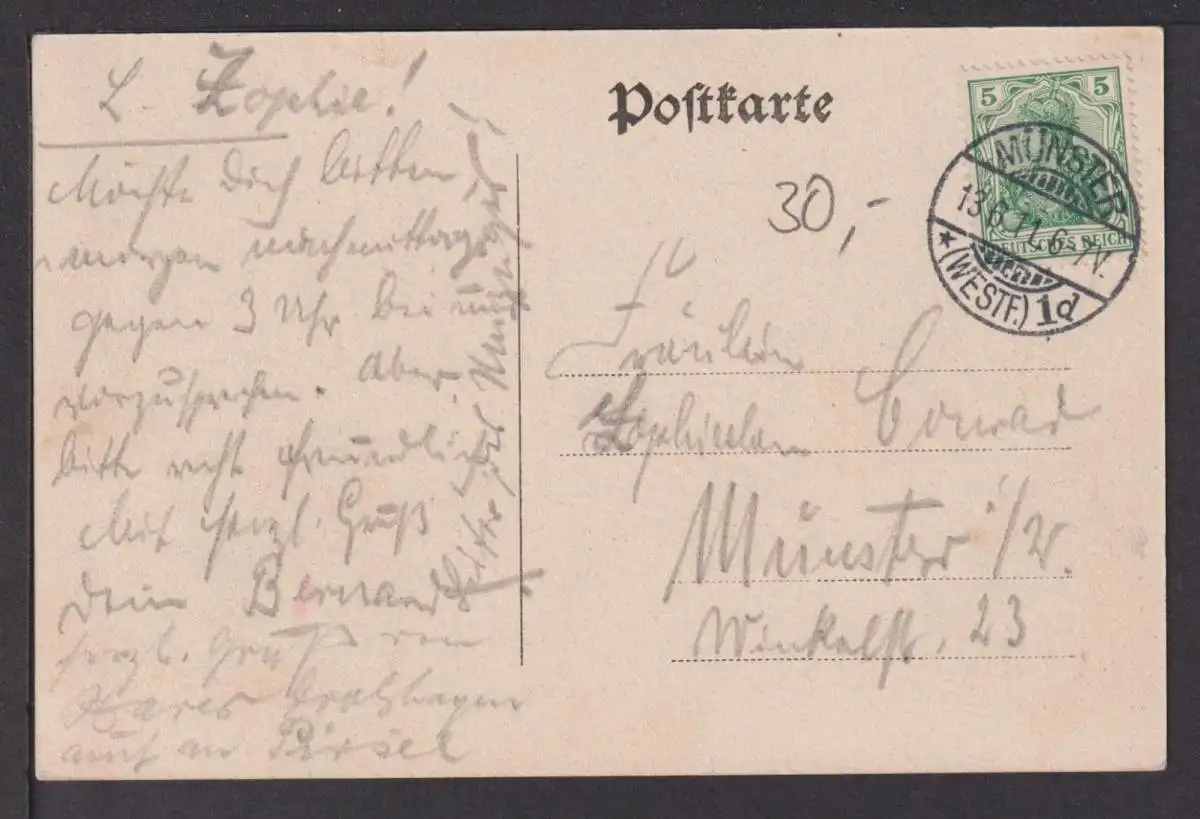 L. Sophie!
Möchte Dich bitten,
morgen nachmittag
gegen 3 Uhr bei uns
vorzusprechen. Aber
bitte recht freundlich
Mit herzl. Gruß
Dein Bernard
herzl. Gruß von
auch an
bitte
Postkarte
30,-
5 5
DEUTSCHES REICH
MÜNSTER
13.6.11. 6-7N.
*(WESTF.) 1d
Fräulein
Conrad
Münster i/W.
Winkelstr. 23